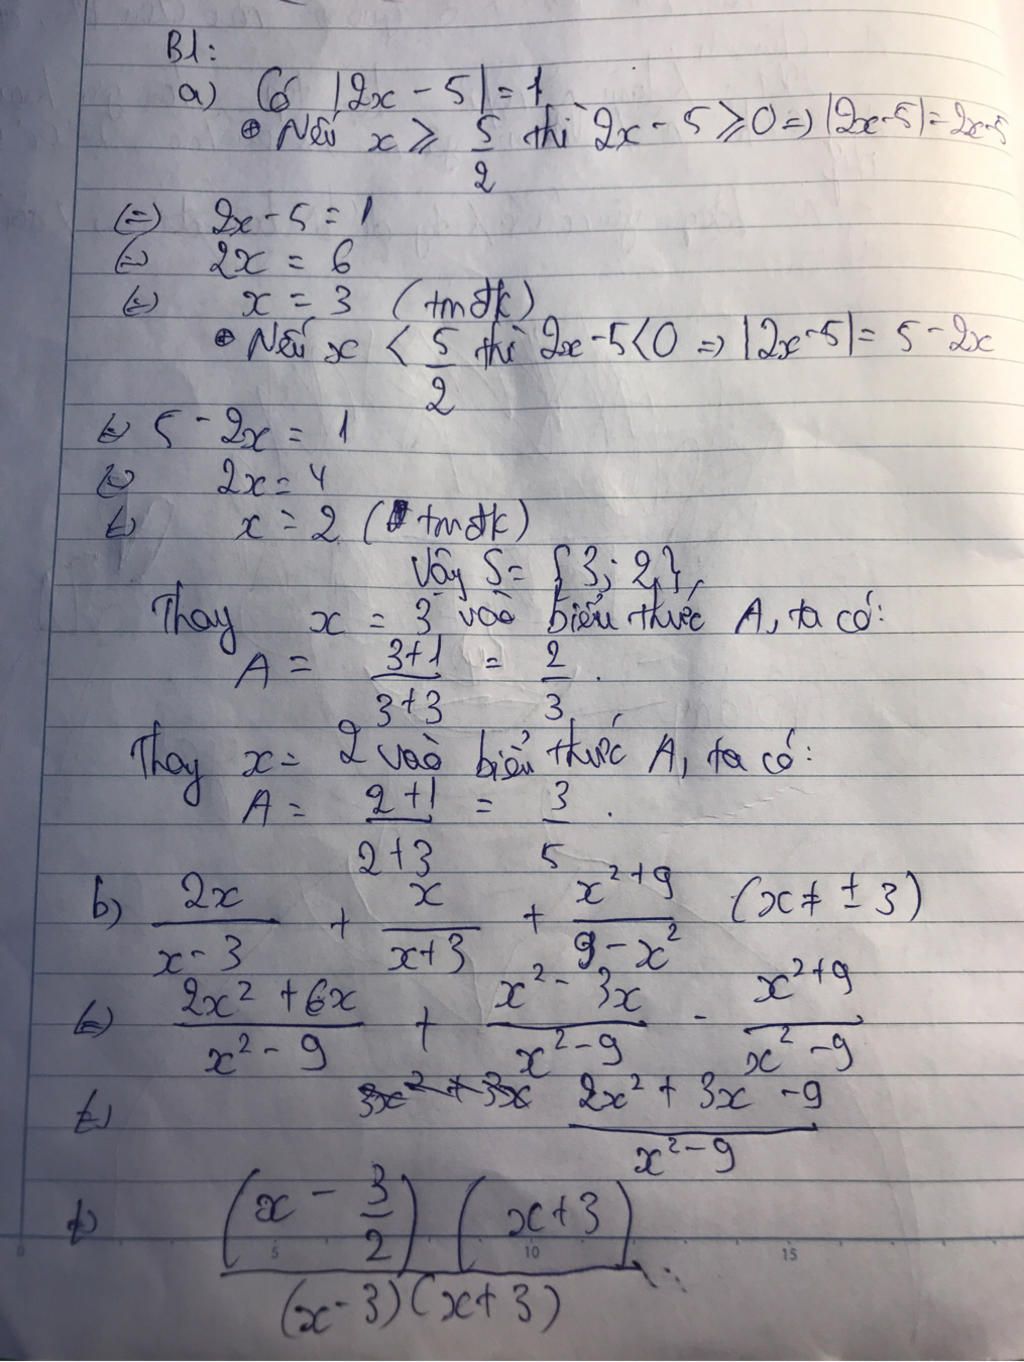 B1:
a) Có |2x - 5| = 1
⊕ Nếu x ≥ 5/2 thì 2x - 5 ≥ 0 => |2x-5| = 2x-5
(=) 2x - 5 = 1
(=) 2x = 6
(=) x = 3 (tmđk)
⊕ Nếu x < 5/2 thì 2x - 5 < 0 => |2x-5| = 5 - 2x
(=) 5 - 2x = 1
(=) 2x = 4
(=) x = 2 (tmđk)
Vậy S = {3; 2}
Thay x = 3 vào biểu thức A, ta có:
A = (3+1)/(3+3) = 2/3.
Thay x = 2 vào biểu thức A, ta có:
A = (2+1)/(2+3) = 3/5.
b) 2x/(x-3) + x/(x+3) + (x²+9)/(9-x²) (x ≠ ± 3)
(=) (2x² + 6x)/(x² - 9) + (x² - 3x)/(x² - 9) - (x²+9)/(x² - 9)
(=) 3x² + 3x (2x² + 3x - 9)/(x² - 9)
(=) (x - 3/2) (x+3)/(x-3)(x+3)
0 5 10 15